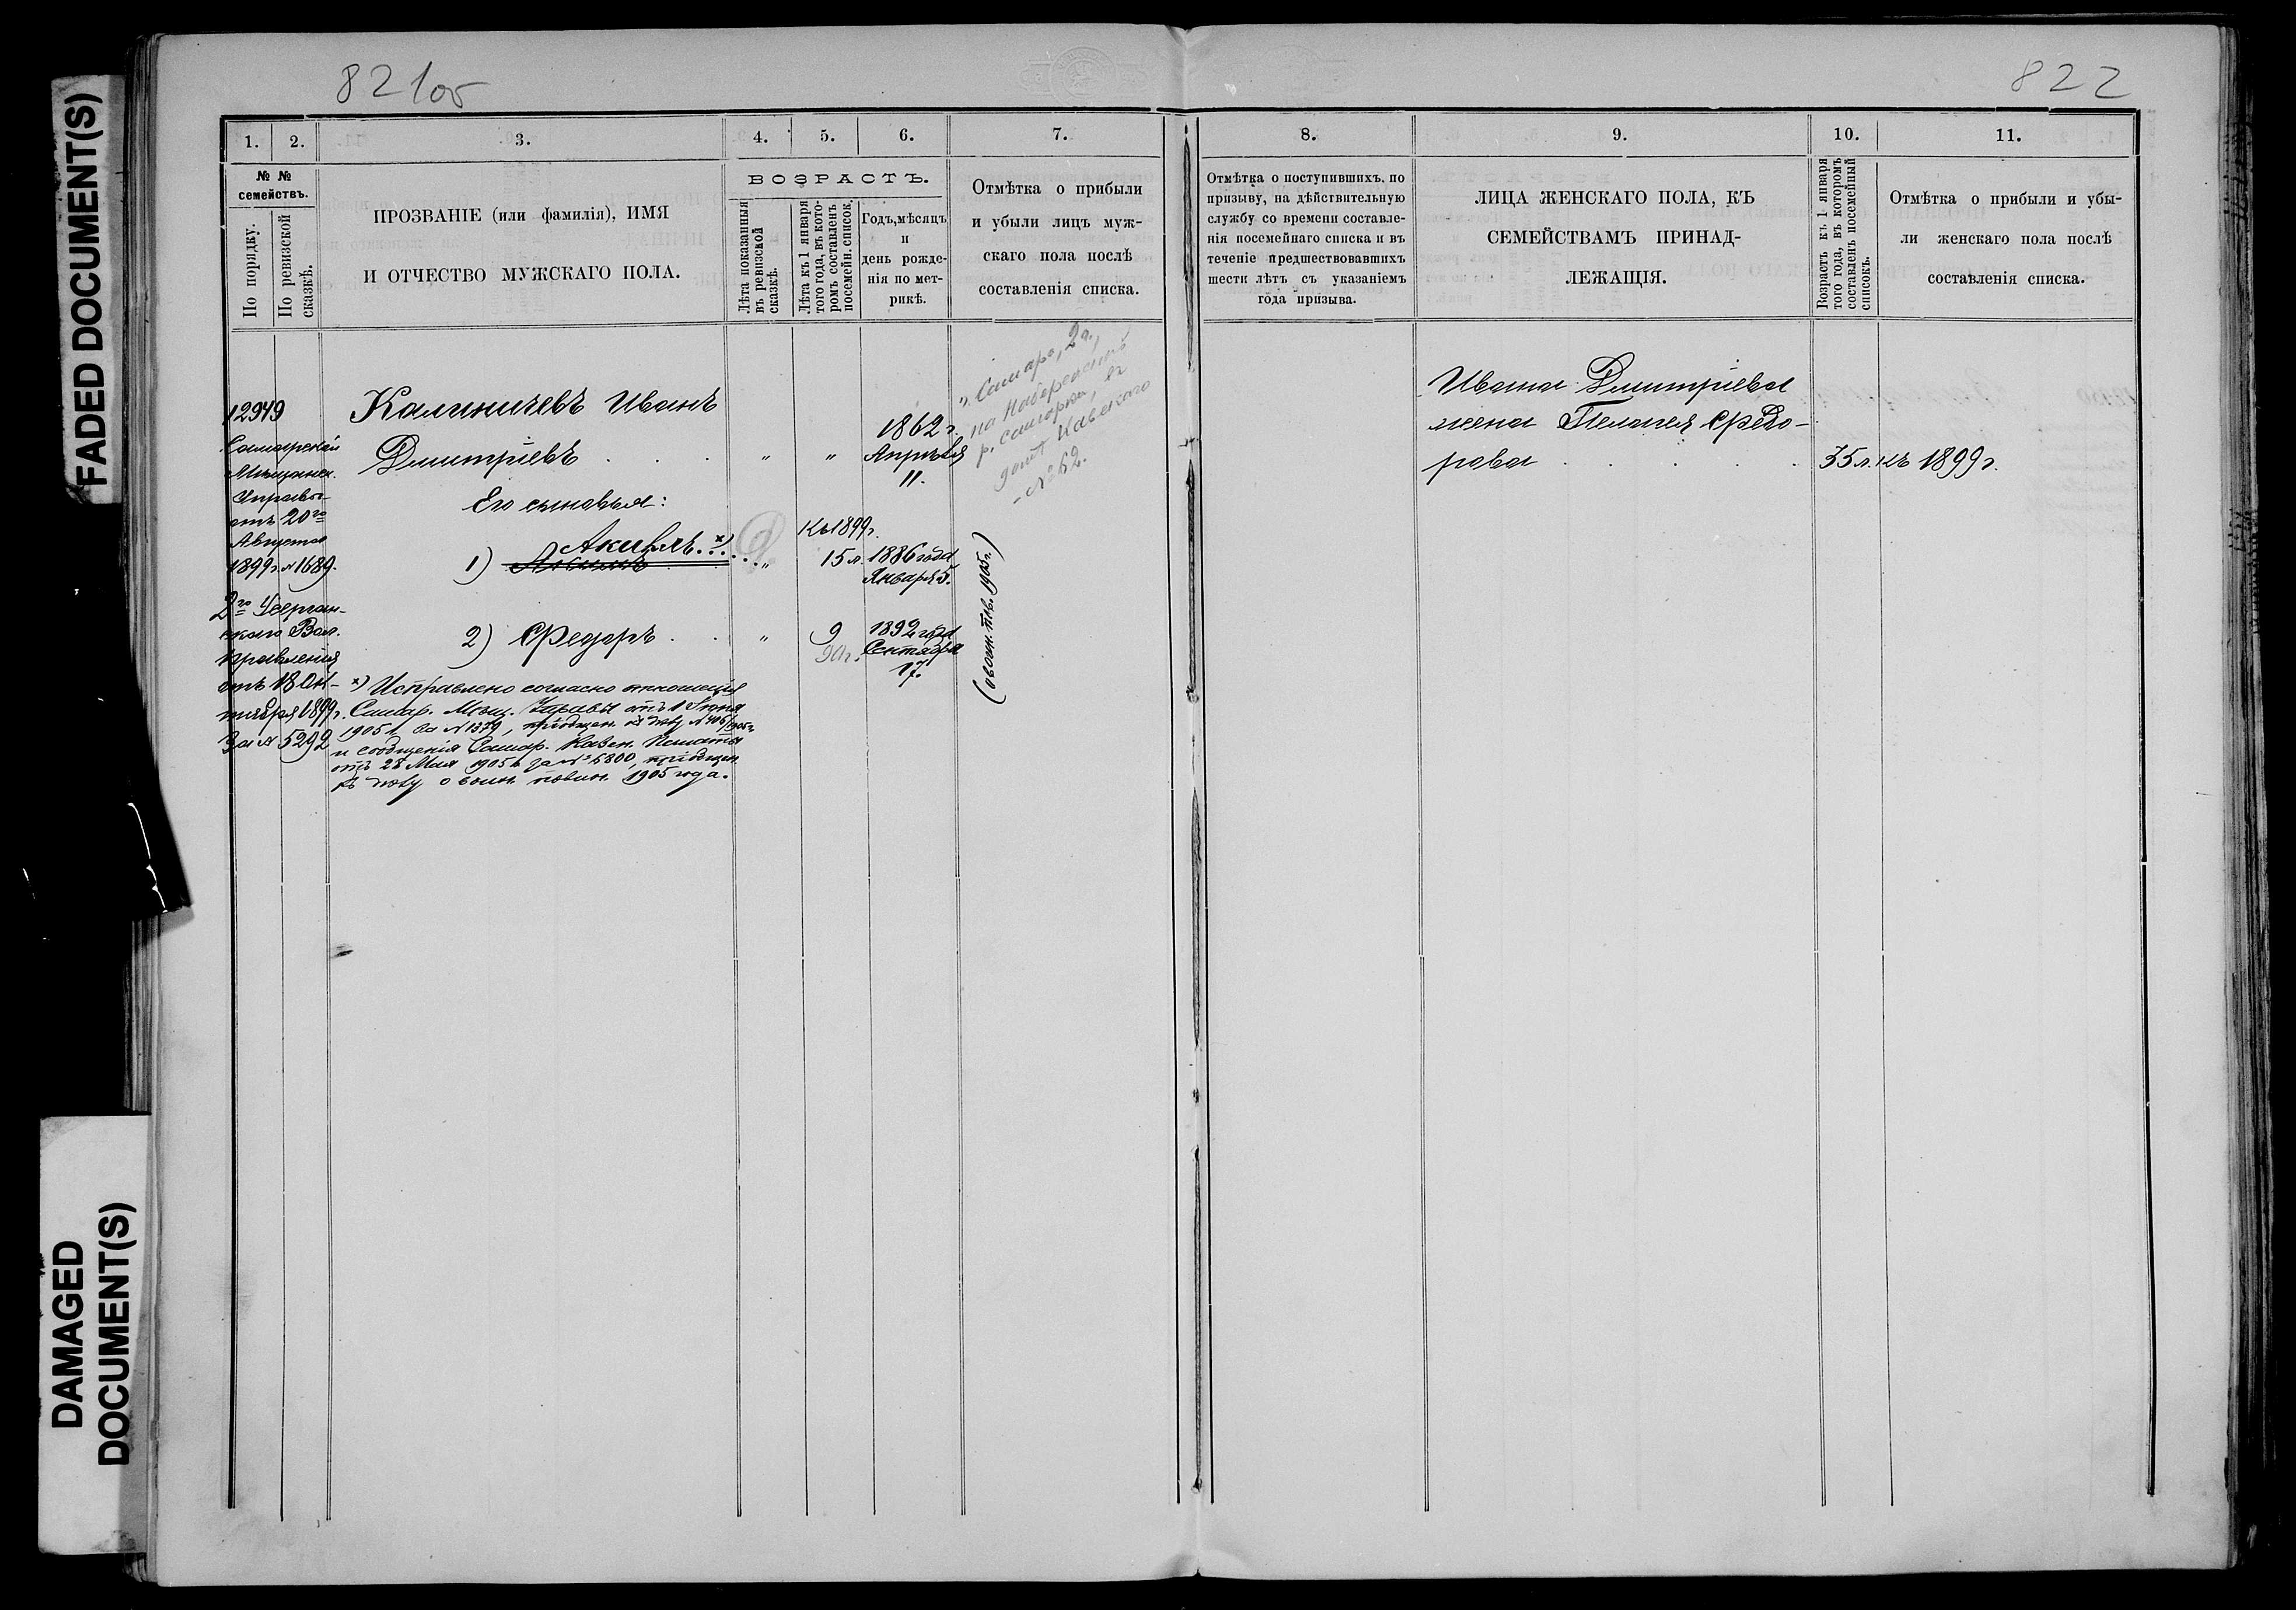 FADED DOCUMENT(S)
DAMAGED
DOCUMENT(S)
821об
822
1.
2.
3.
4.
5.
6.
7.
8.
9.
10.
11.
№ №
семействъ.
По порядку.
По ревизской
сказкѣ.
ПРОЗВАНІЕ (или фамилія), ИМЯ
И ОТЧЕСТВО МУЖСКАГО ПОЛА.
ВОЗРАСТЪ.
Лѣта показанныя
въ ревизской
сказкѣ.
Лѣта къ 1 января
того года, въ кото-
ромъ составленъ
посемейн. списокъ.
Годъ, мѣсяцъ
и
день рожде-
нія по мет-
рикѣ.
Отмѣтка о прибыли
и убыли лицъ муж-
скаго пола послѣ
составленія списка.
Отмѣтка о поступившихъ, по
призыву, на дѣйствительную
службу со времени составле-
нія посемейнаго списка и въ
теченіе предшествовавшихъ
шести лѣтъ съ указаніемъ
года призыва.
ЛИЦА ЖЕНСКАГО ПОЛА, КЪ
СЕМЕЙСТВАМЪ ПРИНАД-
ЛЕЖАЩІЯ.
Возрастъ къ 1 января
того года, въ которомъ
составленъ посемейный
списокъ.
Отмѣтка о прибыли и убы-
ли женскаго пола послѣ
составленія списка.
12949
Самарской
Мѣщанск.
Управы
отъ 20го
Августа
1899 г. № 1689.
2го
Вол.
Правленія
отъ 18 Ок-
тября 1899 г.
За № 5292
Калиничевъ Иванъ
Дмитріевъ . . . " "
1862 г.
Апрѣля
11.
Его сыновья:
Къ 1899 г.
1) Акила x)
" 15 л. 1886 года
Января 5.
2) Ѳедоръ . . " 9
1892 года
Сентября
17.
x) Исправлено согласно отношенія
Самар. Мѣщ. Управы отъ 1 Іюня
1905 г. за № 1379, пріобщен. къ дѣлу №
и сообщенія Самар. Казен. Палаты
отъ 28 Мая 1905 г. за № 6800, пріобщен.
къ дѣлу о воин. повин. 1905 года.
"Самара, 2 ч.,
на набережной
р. Самарки, въ
домѣ
№ 62.
(о воин. пов. 1905 г.)
Ивана Дмитріева
жена Пелагея Ѳедо-
рова . . . . . 35 л. къ 1899 г.